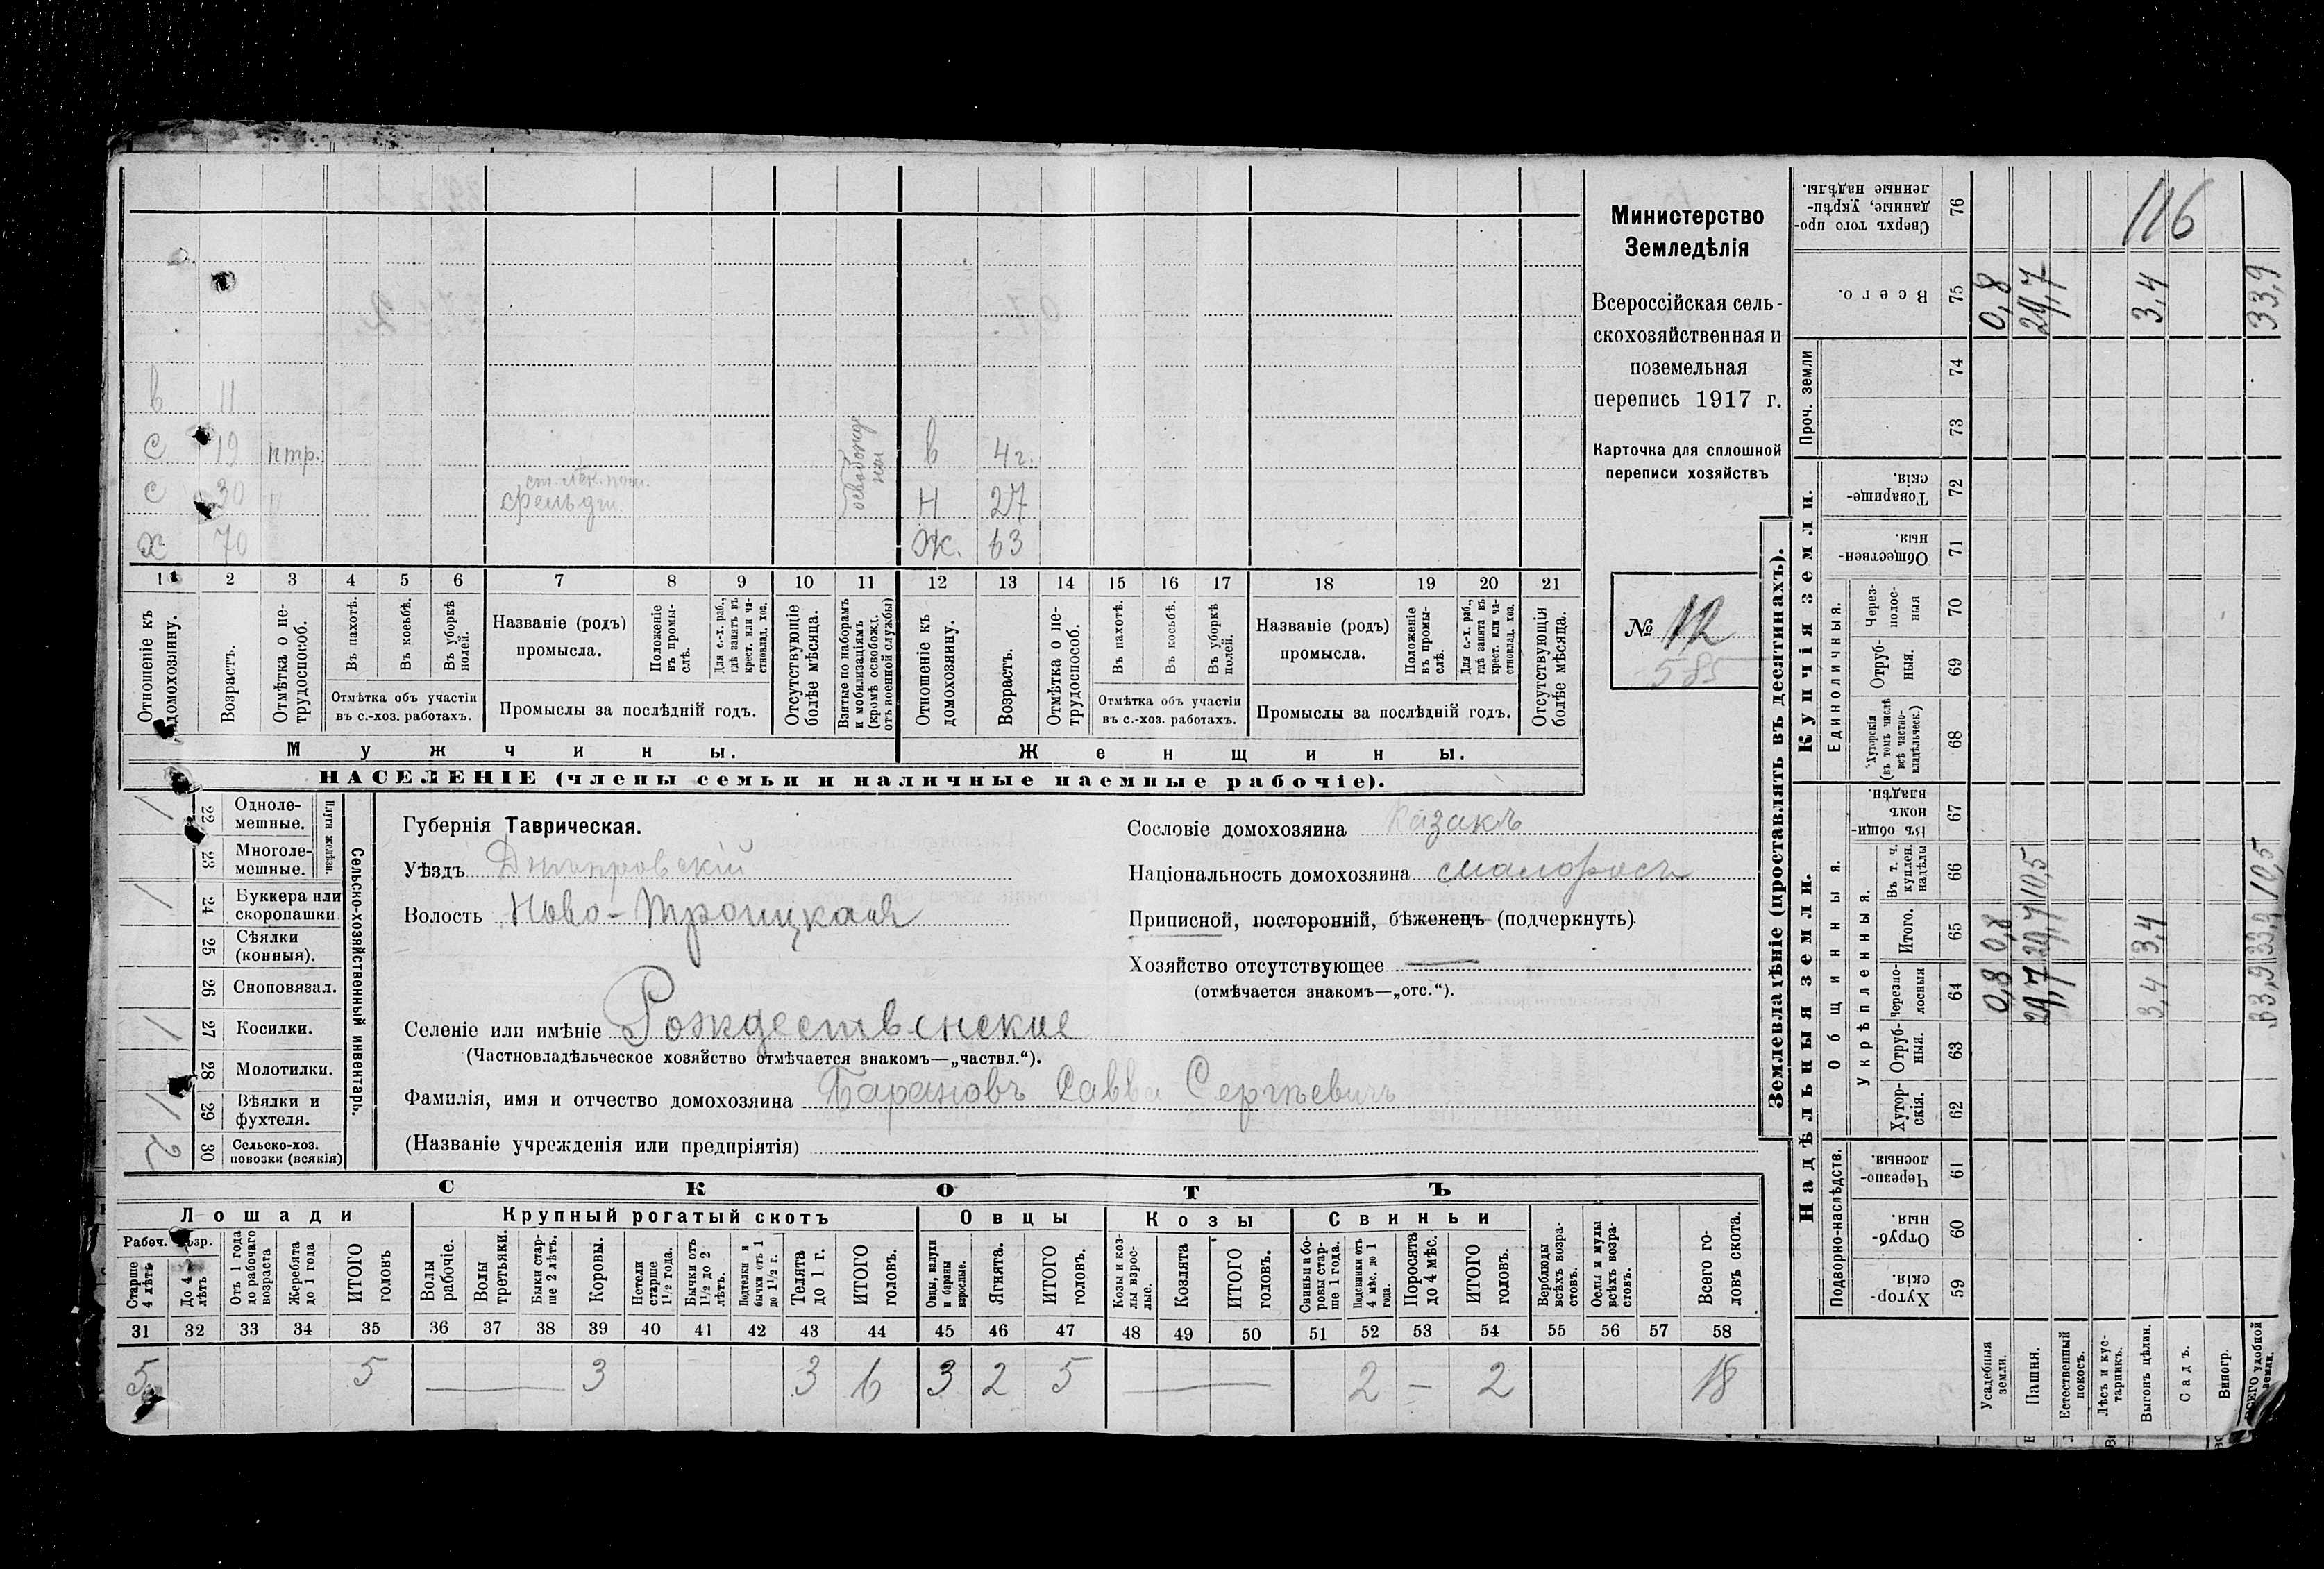 Министерство
Земледѣлія
Всероссійская сель-
скохозяйственная и
поземельная
перепись 1917 г.
Карточка для сплошной
переписи хозяйствъ
№ 12
585
в 11
С 19 нтр. в 4 г.
С 30 ст. лек. пом. фельдш. Н 27
Х 70 Ж. 63
освобожде
ны
1 2 3 4 5 6 7 8 9 10 11 12 13 14 15 16 17 18 19 20 21
Отношеніе къ домохозяину.
Возрастъ.
Отмѣтка о не-трудоспособ.
Въ пахотѣ.
Въ косьбѣ.
Въ уборкѣ полей.
Отмѣтка объ участіи въ с.-хоз. работахъ.
Названіе (родъ) промысла.
Положеніе въ промы-слѣ.
Для с.-х. раб., гдѣ занятъ въ крест. или ча-стновлад. хоз.
Промыслы за послѣдній годъ.
Отсутствующіе болѣе мѣсяца.
Взятые по наборамъ и мобилизаціямъ (кромѣ освобожд. отъ военной службы)
Отношеніе къ домохозяину.
Возрастъ.
Отмѣтка о не-трудоспособ.
Въ пахотѣ.
Въ косьбѣ.
Въ уборкѣ полей.
Отмѣтка объ участіи въ с.-хоз. работахъ.
Названіе (родъ) промысла.
Положеніе въ промы-слѣ.
Для с.-х. раб., гдѣ занята въ крест. или ча-стновлад. хоз.
Промыслы за послѣдній годъ.
Отсутствующія болѣе мѣсяца.
Мужчины. Женщины.
НАСЕЛЕНІЕ (члены семьи и наличные наемные рабочіе).
Губернія Таврическая.
Уѣздъ Днѣпровскій
Волость Ново-Троицкая
Селеніе или имѣніе Рождественское
(Частновладѣльческое хозяйство отмѣчается знакомъ—„частвл.“).
Фамилія, имя и отчество домохозяина Барановъ Савва Сергѣевичъ
(Названіе учрежденія или предпріятія)
Сословіе домохозяина Казакъ
Національность домохозяина малороссъ
Приписной, посторонній, бѣженецъ (подчеркнуть).
Хозяйство отсутствующее —
(отмѣчается знакомъ—„отс.“).
Сельско-хозяйственный инвентарь.
Плуги желѣзн.
1 22 Одноле-мешные.
23 Многоле-мешные.
1 24 Буккера или скоропашки.
25 Сѣялки (конныя).
26 Сноповязал.
1 27 Косилки.
28 Молотилки.
1 29 Вѣялки и фухтеля.
2 30 Сельско-хоз. повозки (всякія)
СКОТЪ
Лошади Крупный рогатый скотъ Овцы Козы Свиньи
Рабоч. возр.
Старше 4 лѣтъ
До 4 лѣтъ
Отъ 1 года до рабочаго возраста
Жеребята до 1 года
ИТОГО головъ
Волы рабочіе.
Волы третьяки.
Быки стар-ше 2 лѣтъ.
Коровы.
Нетели старше 1½ года.
Бычки отъ 1½ до 2 лѣтъ.
Подтелки и бычки отъ 1 до 1½ г.
Телята до 1 г.
ИТОГО головъ.
Овцы, валухи и бараны взрослые.
Ягнята.
ИТОГО головъ.
Козы и коз-лы взрос-лые.
Козлята
ИТОГО головъ.
Свиньи и бо-ровы стар-ше 1 года.
Подсвинки отъ 4 мѣс. до 1 года.
Поросята до 4 мѣс.
ИТОГО головъ.
Верблюды всѣхъ возра-стовъ.
Ослы и мулы всѣхъ возра-стовъ.
Всего го-ловъ скота.
31 32 33 34 35 36 37 38 39 40 41 42 43 44 45 46 47 48 49 50 51 52 53 54 55 56 57 58
5 5 — 3 3 6 3 2 5 — 2 — 2 18
Землевладѣніе (проставлять въ десятинахъ).
Надѣльныя земли. Купчія земли. Проч. земли
Подворно-наслѣдств.
Общинныя.
Укрѣпленныя.
Единоличныя.
59 Хутор-скія.
60 Отруб-ныя.
61 Черезпо-лосныя.
62 Хутор-скія.
63 Отруб-ныя.
64 Черезпо-лосныя
65 Итого.
66 Въ т. ч. куплен. надѣлы
67 Въ общи-номъ владѣн.
68 Хуторскія (въ томъ числѣ всѣ частно-владѣльческ.)
69 Отруб-ныя.
70 Через-полос-ныя
71 Обществен-ныя.
72 Товарище-скія.
73
74
75 Всего.
76 Сверхъ того про-данные, укрѣп-ленные надѣлы.
Усадебныя земли. 0,8 0,8 0,8
Пашня. 29,7 29,7 10,5 29,7
Естественный покосъ.
Лѣсъ и кус-тарникъ.
Выгонъ цѣлин. 3,4 3,4 3,4 116
Садъ.
Виногр.
ВСЕГО удобной земли. 33,9 33,9 10,5 33,9